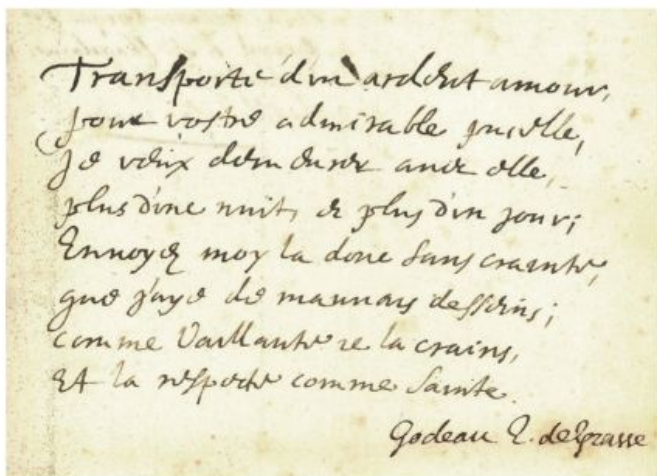 Transporté d'un ardent amour,
pour vostre admirable pucelle,
je veux demeurer avec elle,
plus d'une nuit, et plus d'un jour;
Envoyez moy la donc sans crainte,
que j'aye de mauvais desseins;
comme Vaillante ie la crains,
Et la respecte comme Sainte.
Godeau E. de Grasse